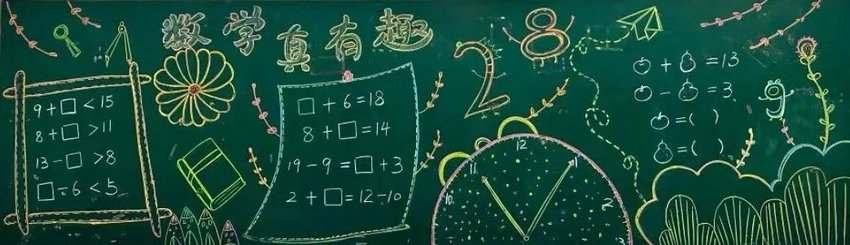 数学真有趣
28
9+□<15
8+□>11
13-□>8
□÷6<5
□+6=18
8+□=14
19-9=□+3
2+□=12÷10
10
11
12
1
2
+ =13
- =3
=( )
=( )
9